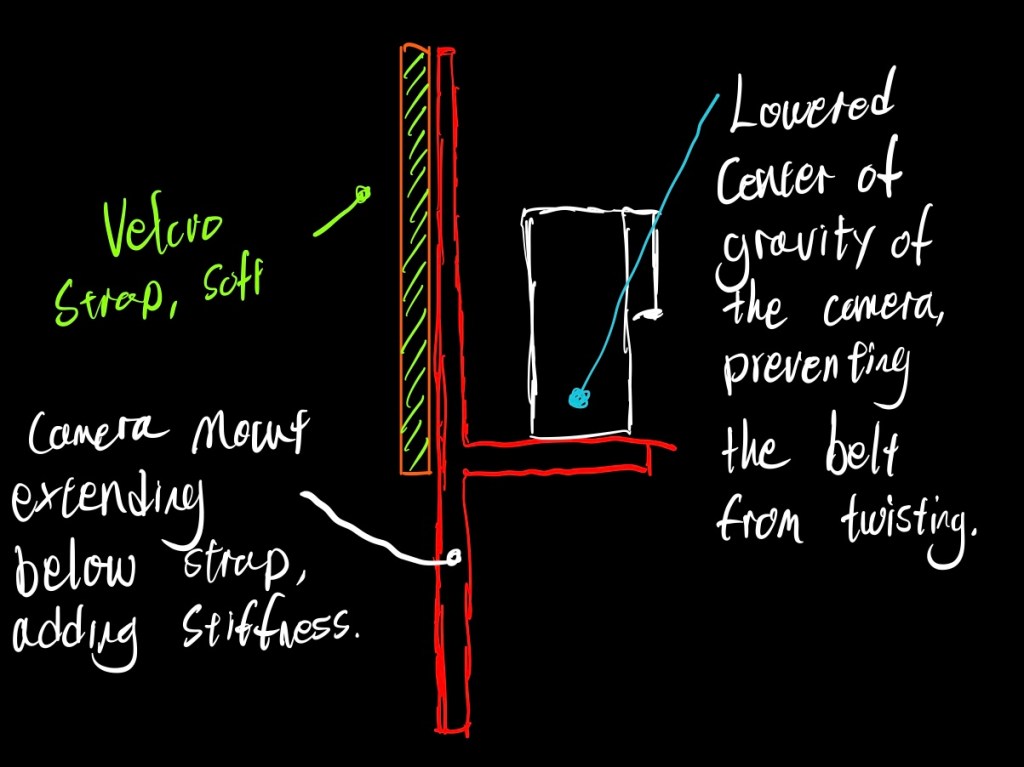 Velcro
Strap, Soft
Camera Mount
extending
below strap,
adding Stiffness.
Lowered
Center of
gravity of
the camera,
preventing
the belt
from twisting.